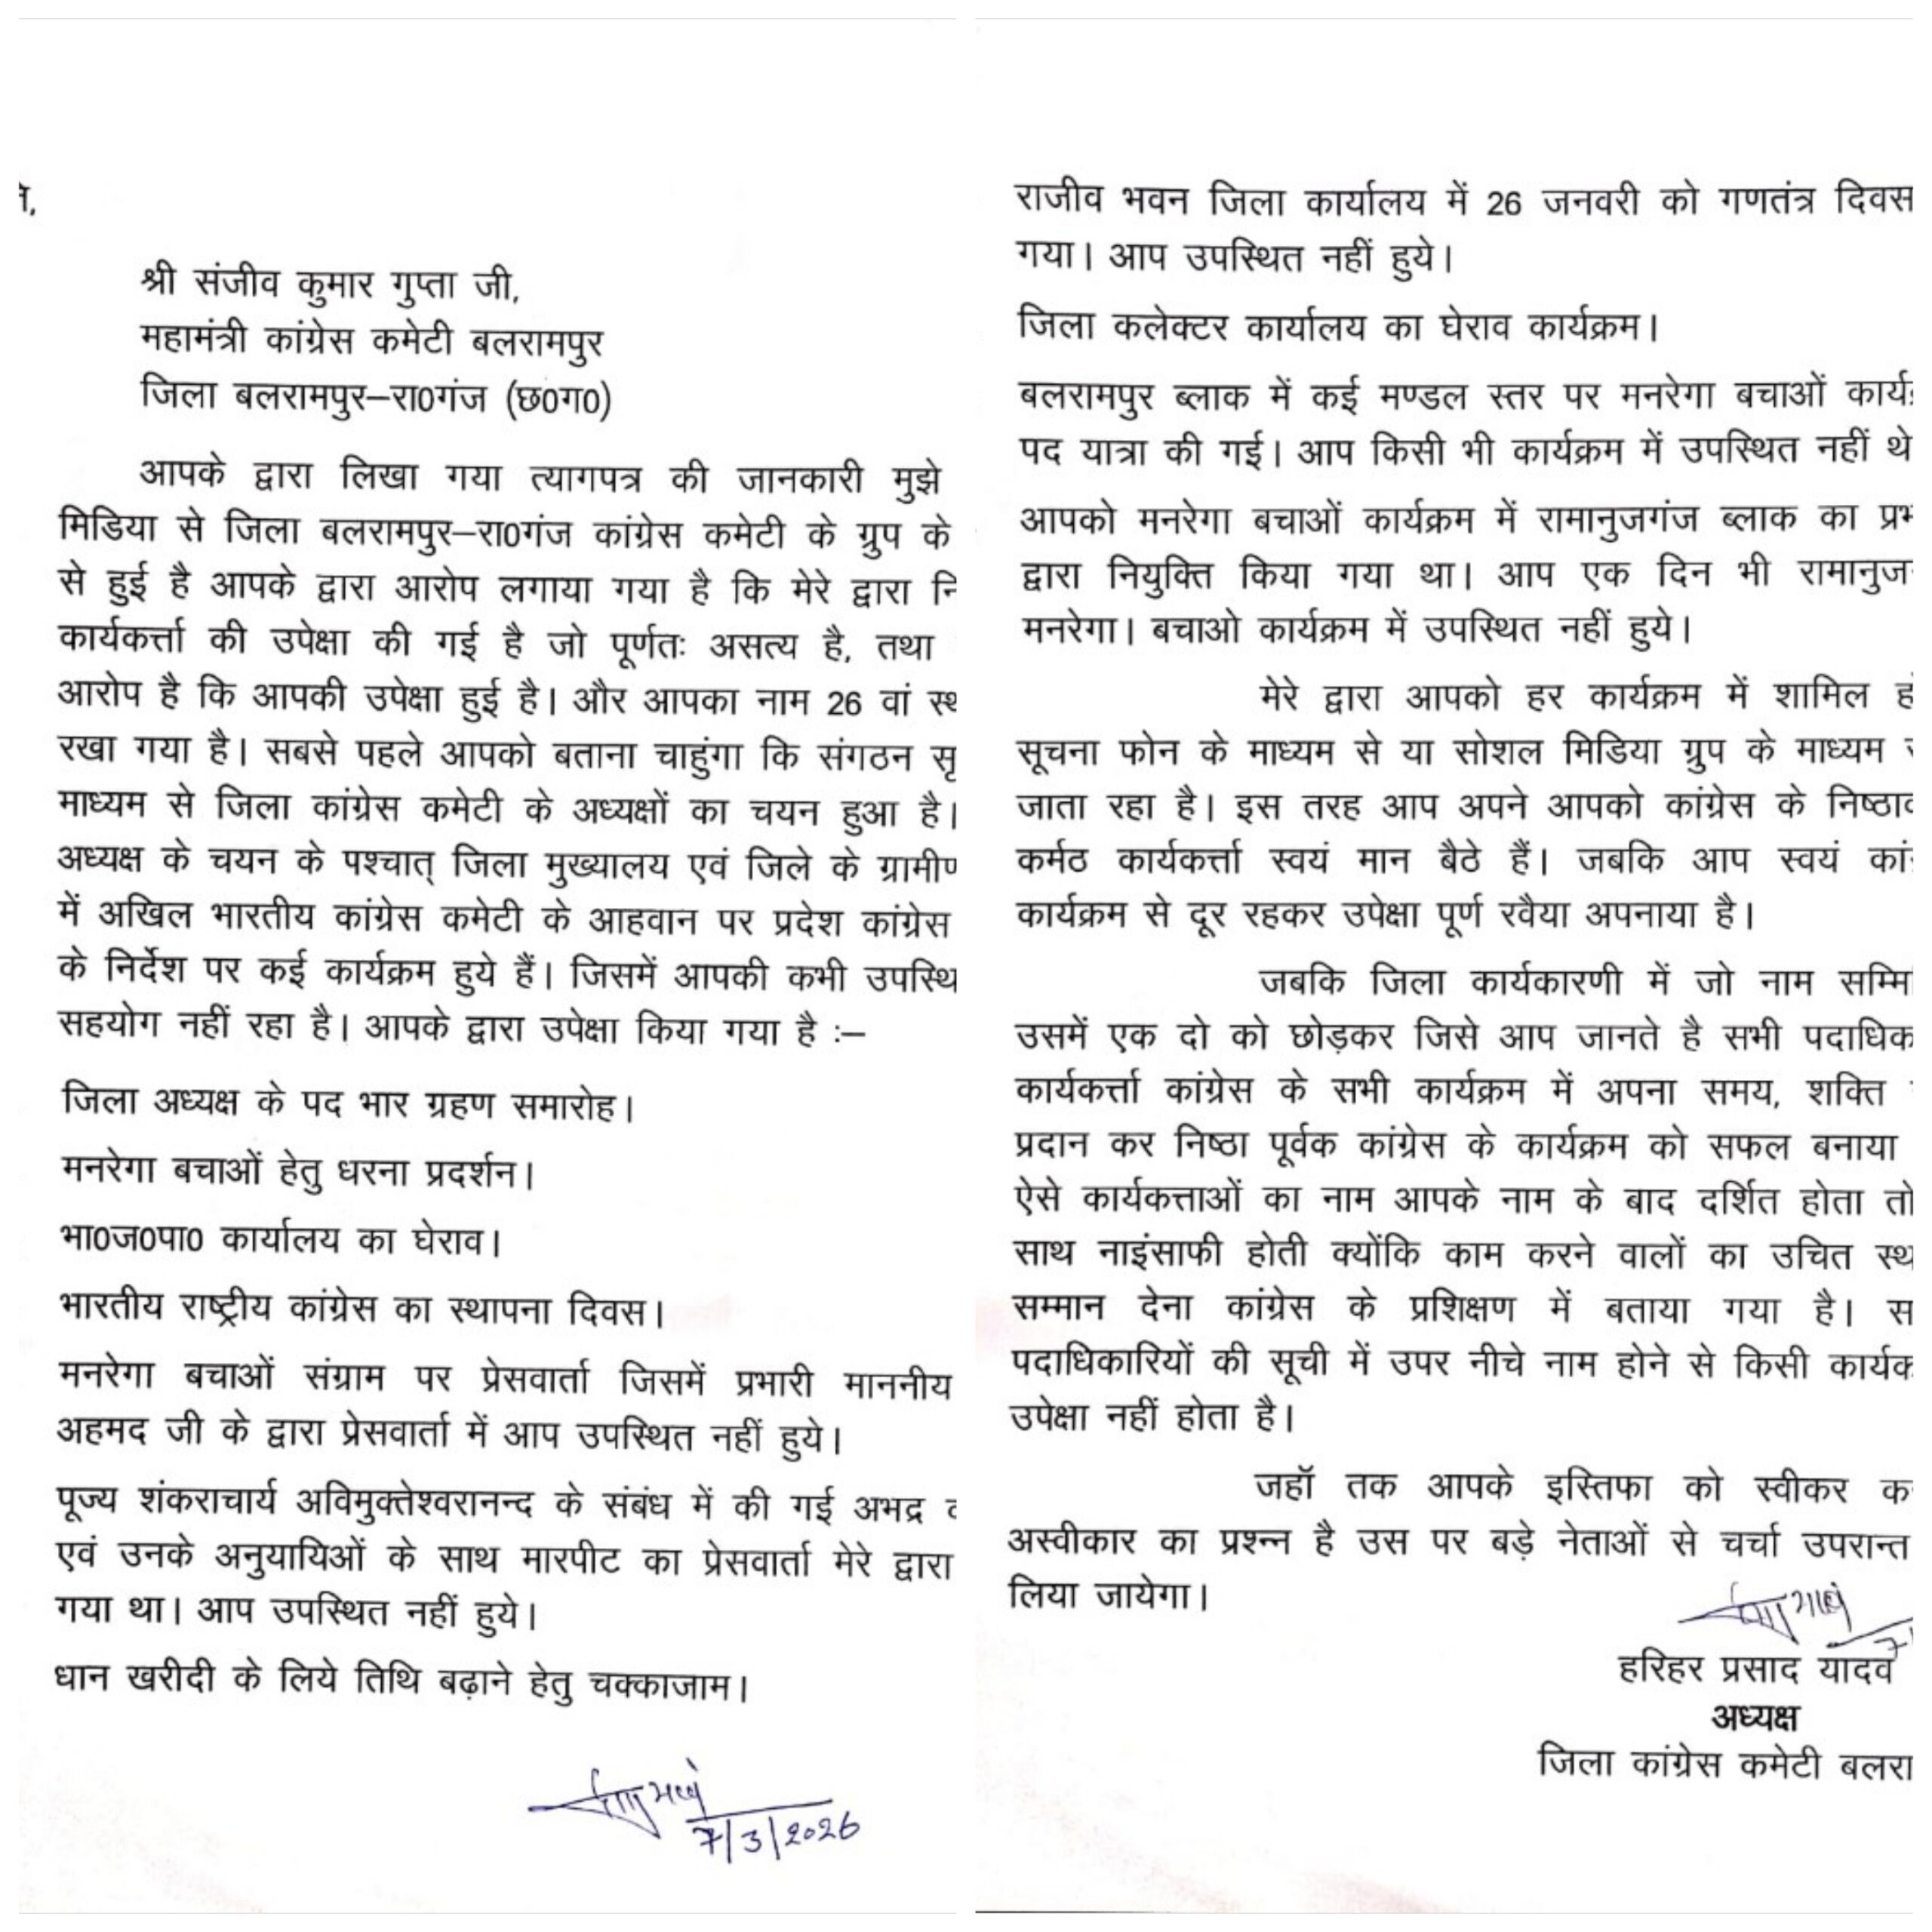 श्री संजीव कुमार गुप्ता जी,
महामंत्री कांग्रेस कमेटी बलरामपुर
जिला बलरामपुर–रा0गंज (छ0ग0)
आपके द्वारा लिखा गया त्यागपत्र की जानकारी मुझे
मिडिया से जिला बलरामपुर–रा0गंज कांग्रेस कमेटी के ग्रुप के
से हुई है आपके द्वारा आरोप लगाया गया है कि मेरे द्वारा
कार्यकर्त्ता की उपेक्षा की गई है जो पूर्णतः असत्य है, तथा
आरोप है कि आपकी उपेक्षा हुई है। और आपका नाम 26 वां
रखा गया है। सबसे पहले आपको बताना चाहुंगा कि संगठन
माध्यम से जिला कांग्रेस कमेटी के अध्यक्षों का चयन हुआ है।
अध्यक्ष के चयन के पश्चात् जिला मुख्यालय एवं जिले के
में अखिल भारतीय कांग्रेस कमेटी के आहवान पर प्रदेश कांग्रेस
के निर्देश पर कई कार्यक्रम हुये हैं। जिसमें आपकी कभी
सहयोग नहीं रहा है। आपके द्वारा उपेक्षा किया गया है :–
जिला अध्यक्ष के पद भार ग्रहण समारोह।
मनरेगा बचाओं हेतु धरना प्रदर्शन।
भा0ज0पा0 कार्यालय का घेराव।
भारतीय राष्ट्रीय कांग्रेस का स्थापना दिवस।
मनरेगा बचाओं संग्राम पर प्रेसवार्ता जिसमें प्रभारी माननीय
अहमद जी के द्वारा प्रेसवार्ता में आप उपस्थित नहीं हुये।
पूज्य शंकराचार्य अविमुक्तेश्वरानन्द के संबंध में की गई अभद्र
एवं उनके अनुयायिओं के साथ मारपीट का प्रेसवार्ता मेरे द्वारा
गया था। आप उपस्थित नहीं हुये।
धान खरीदी के लिये तिथि बढ़ाने हेतु चक्काजाम।
7/3/2026
राजीव भवन जिला कार्यालय में 26 जनवरी को गणतंत्र दिवस
गया। आप उपस्थित नहीं हुये।
जिला कलेक्टर कार्यालय का घेराव कार्यक्रम।
बलरामपुर ब्लाक में कई मण्डल स्तर पर मनरेगा बचाओं
पद यात्रा की गई। आप किसी भी कार्यक्रम में उपस्थित नहीं थे
आपको मनरेगा बचाओं कार्यक्रम में रामानुजगंज ब्लाक का
द्वारा नियुक्ति किया गया था। आप एक दिन भी
मनरेगा। बचाओ कार्यक्रम में उपस्थित नहीं हुये।
मेरे द्वारा आपको हर कार्यक्रम में शामिल
सूचना फोन के माध्यम से या सोशल मिडिया ग्रुप के माध्यम
जाता रहा है। इस तरह आप अपने आपको कांग्रेस के
कर्मठ कार्यकर्त्ता स्वयं मान बैठे हैं। जबकि आप स्वयं
कार्यक्रम से दूर रहकर उपेक्षा पूर्ण रवैया अपनाया है।
जबकि जिला कार्यकारणी में जो नाम
उसमें एक दो को छोड़कर जिसे आप जानते है सभी
कार्यकर्त्ता कांग्रेस के सभी कार्यक्रम में अपना समय, शक्ति
प्रदान कर निष्ठा पूर्वक कांग्रेस के कार्यक्रम को सफल बनाया
ऐसे कार्यकत्ताओं का नाम आपके नाम के बाद दर्शित होता तो
साथ नाइंसाफी होती क्योंकि काम करने वालों का उचित
सम्मान देना कांग्रेस के प्रशिक्षण में बताया गया है।
पदाधिकारियों की सूची में उपर नीचे नाम होने से किसी
उपेक्षा नहीं होता है।
जहॉ तक आपके इस्तिफा को स्वीकार
अस्वीकार का प्रश्न्न है उस पर बड़े नेताओं से चर्चा उपरान्त
लिया जायेगा।
हरिहर प्रसाद यादव
अध्यक्ष
जिला कांग्रेस कमेटी